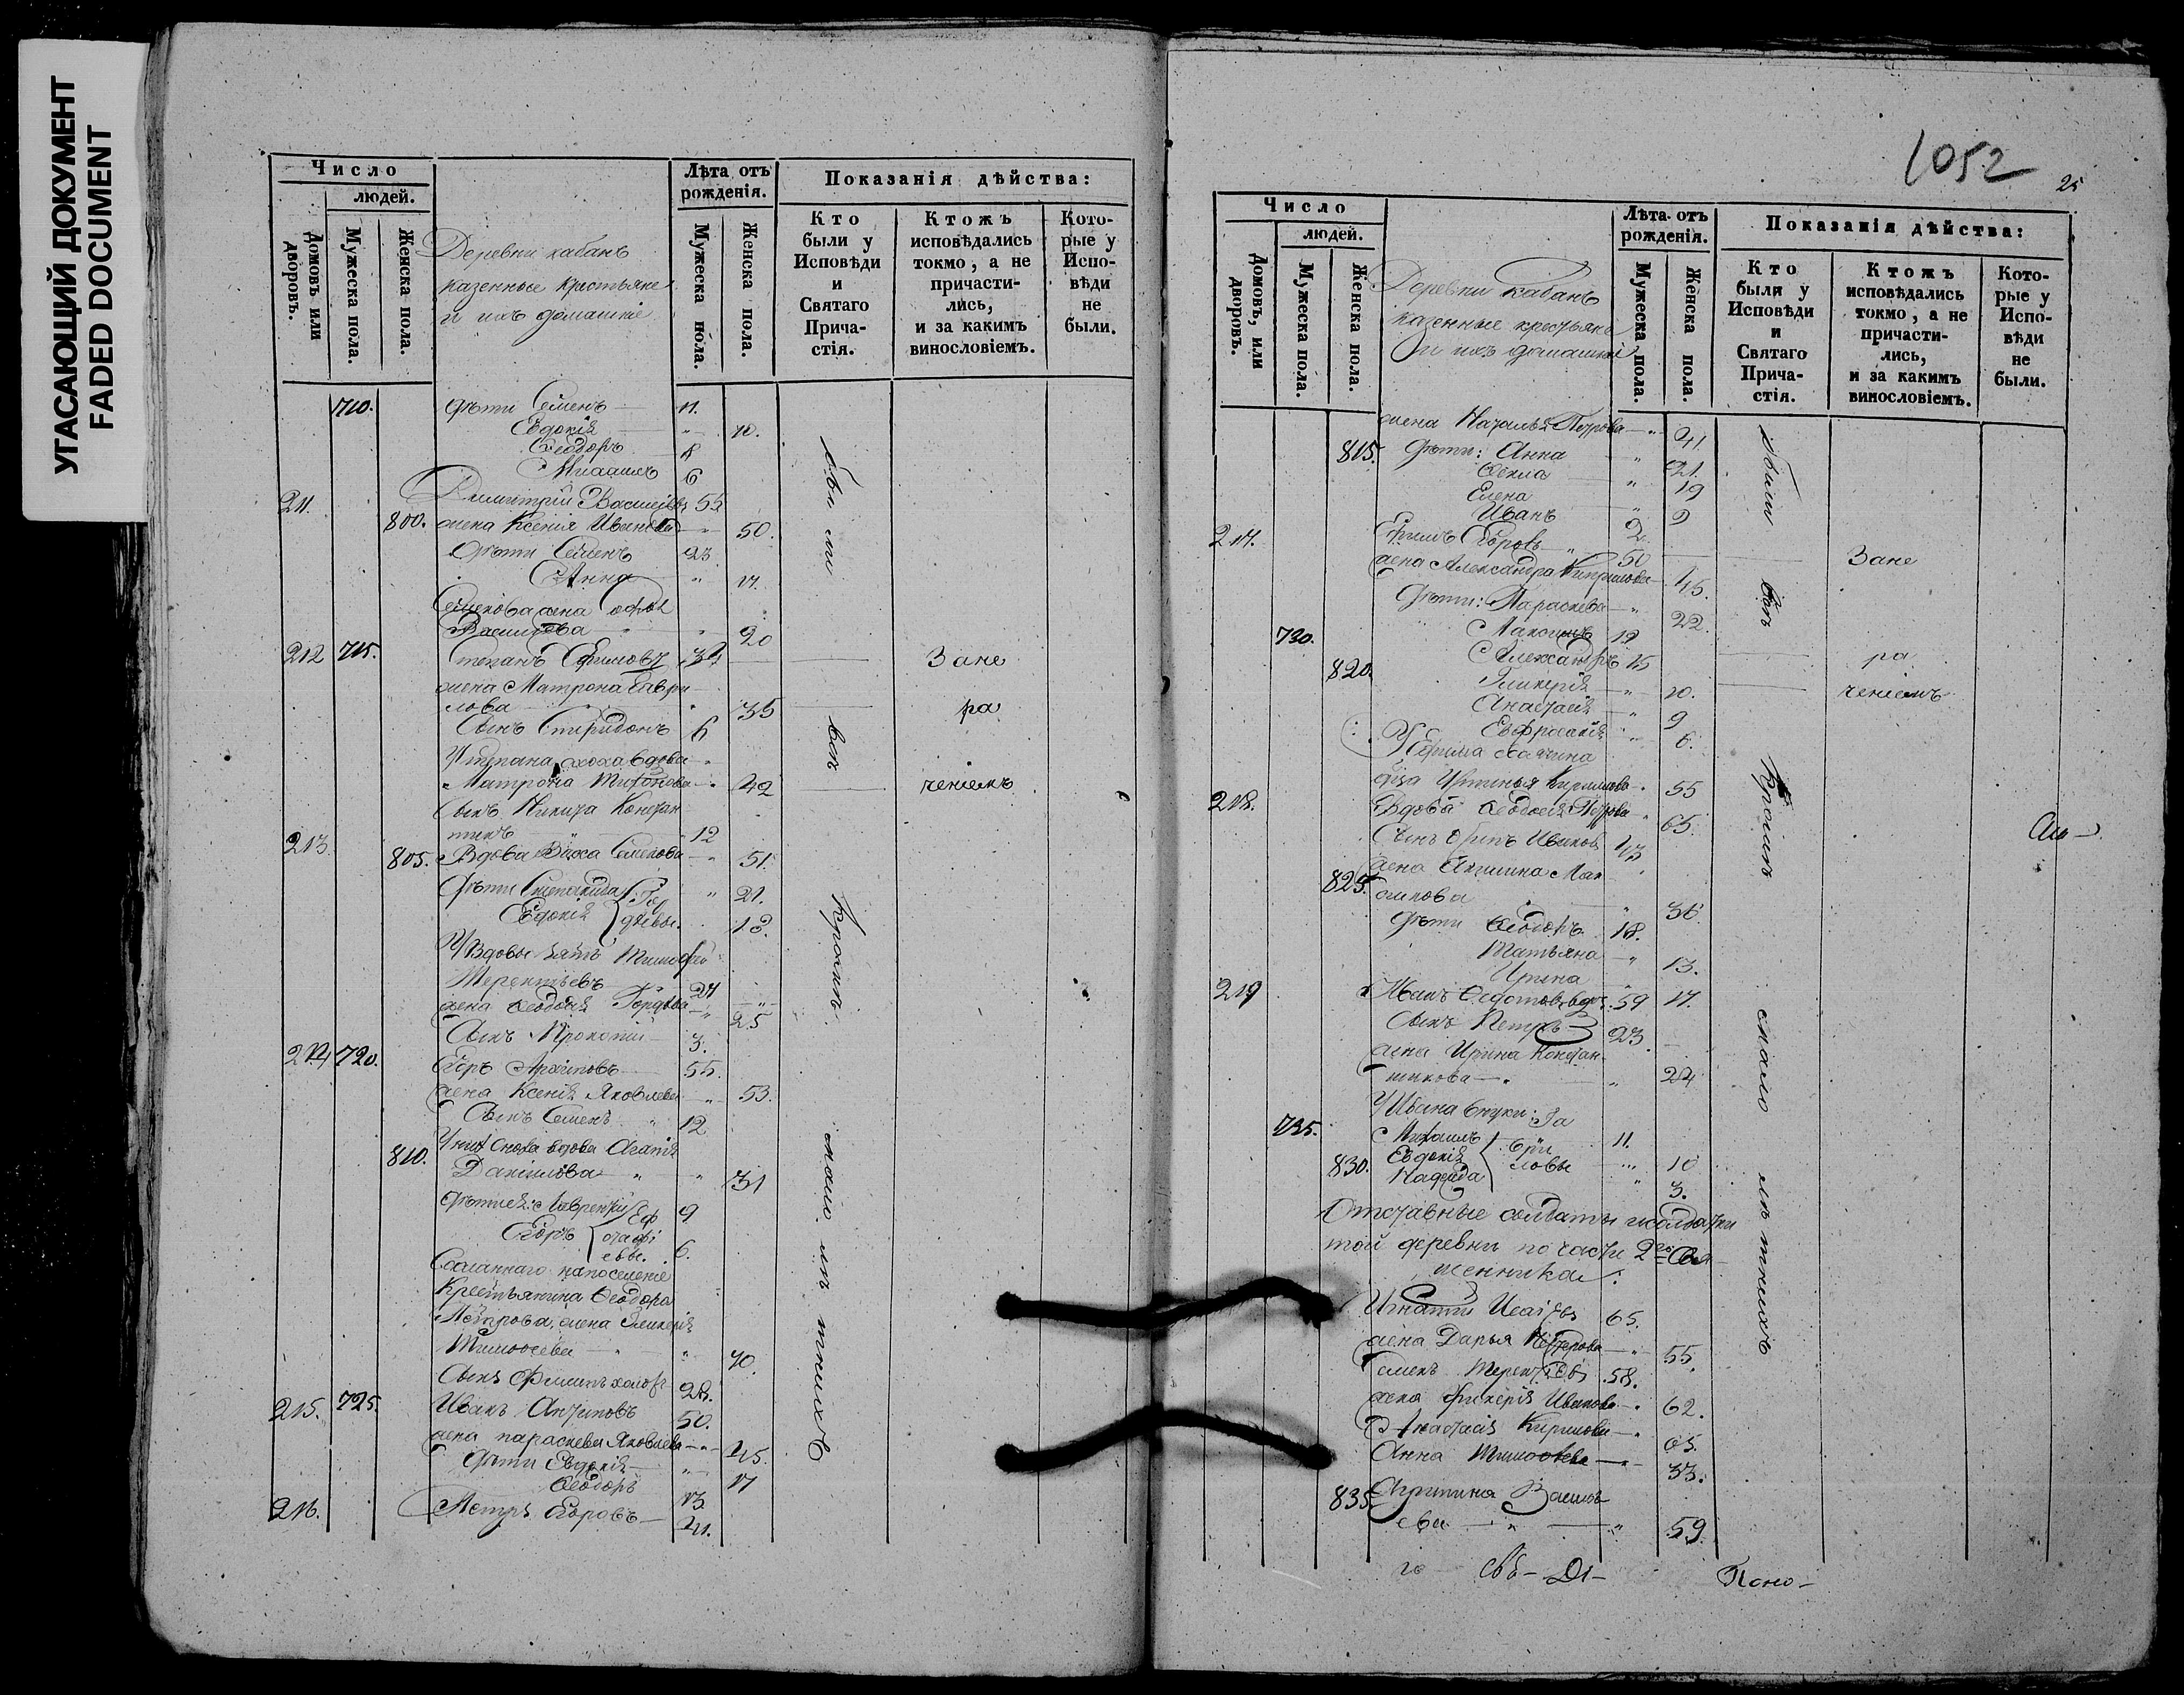 УГАСАЮЩИЙ ДОКУМЕНТ
FADED DOCUMENT
Число
людей.
Домовъ или дворовъ.
Мужеска пола.
Женска пола.
Деревни Кабанъ
казенные крестьяне
и ихъ домашніе
Лѣта отъ рожденія.
Мужеска пола.
Женска пола.
Показанія дѣйства:
Кто были у Исповѣди и Святаго Прича-стія.
Ктожъ исповѣдались токмо, а не причасти-лись, и за какимъ винословіемъ.
Кото-рые у Испо-вѣди не были.
710. дѣти Семенъ 11.
Евдокія " 10.
Ѳеодоръ 8
Михаилъ 6
211. Димитрій Васильевъ 55
800. жена Ксенія Иванова " 50.
дѣти Семенъ 23
Анна " 17.
Семенова жена Софья
Васильева " 20
212 715. Степанъ Ефимовъ 37 Зане
жена Матрона Гаври
лова " 35 ра
Сынъ Спиридонъ 6
У Степана сноха вдова
Матрона Тихонова " 42 ченіемъ
Сынъ Никита Констан
тинъ 12
213. 805. Вдова Васса Семенова " 51.
дѣти Степанида " 21.
Евдокія 13.
У Вдовы зять Тимофей
Терентьевъ 27
жена Ѳеодосія Гордѣева " 25
Сынъ Прокопій 3.
214 720. Егоръ Архиповъ 55.
жена Ксенія Яковлева " 53.
Сынъ Семенъ 12
810. У нихъ сноха вдова Агапія
Данилова " 31
дѣти ея: Лаврентій 9
Егоръ 6.
Сосланнаго на поселеніе
Крестьянина Ѳеодора
Петрова жена Гликерія
Тимоѳеева " 70.
Сынъ Филиппъ холостъ 28.
215. 725. Иванъ Антиповъ 50.
жена Параскева Яковлева " 45.
дѣти Евдокія " 17
Ѳеодоръ 13
216. Петръ Егоровъ 41.
были
всѣ
Кромѣ
мало
лѣтнихъ
1052
25
Число
людей.
Домовъ, или дворовъ.
Мужеска пола.
Женска пола.
Деревни Кабанъ
казенные крестьяне
и ихъ домашніе
Лѣта отъ рожденія.
Мужеска пола.
Женска пола.
Показанія дѣйства:
Кто были у Исповѣди и Святаго Прича-стія.
Ктожъ исповѣдались токмо, а не причасти-лись, и за какимъ винословіемъ.
Кото-рые у Испо-вѣди не были.
жена Наталья Петрова " 41.
815. дѣти: Анна " 21.
Ѳекла " 19
Елена " 9
Иванъ 2
217. Ефимъ Егоровъ 50 Зане
жена Александра Кирилова 45.
дѣти: Параскева " 22.
730. Максимъ 19
Александръ 15 ра
820. Гликерія " 10. ченіемъ
Анастасія " 9
Евфросинія " 6.
У Ефима
Иринья Кирилова 55
218. Вдова Ѳеодосія Петрова " 65.
Сынъ Иванов 43
825. жена Акилина Мак
симова " 36.
дѣти Ѳеодоръ 18.
Татьяна " 13.
Ирина 17.
219 Иванъ Ѳедотовъ вдов. 59
Сынъ Петръ 23
жена Ирина Констан
тинова " 24
У Ивана внуки: Га
735. Михаилъ 11.
Евдокія " 10
830. Надежда " 3.
Отставные солдаты и солдатки
той деревни по части 2го Свя
щенника:
Игнатій Исаевъ 65.
жена Дарья " 55.
Семенъ Терентьевъ 58.
жена Гликерія Иванова " 62.
Анастасія Кирилова " 65.
Анна Тимоѳеева " 33.
835. Агрипина Василь
ева " 59.
были
всѣ
Кромѣ
мало
лѣтнихъ